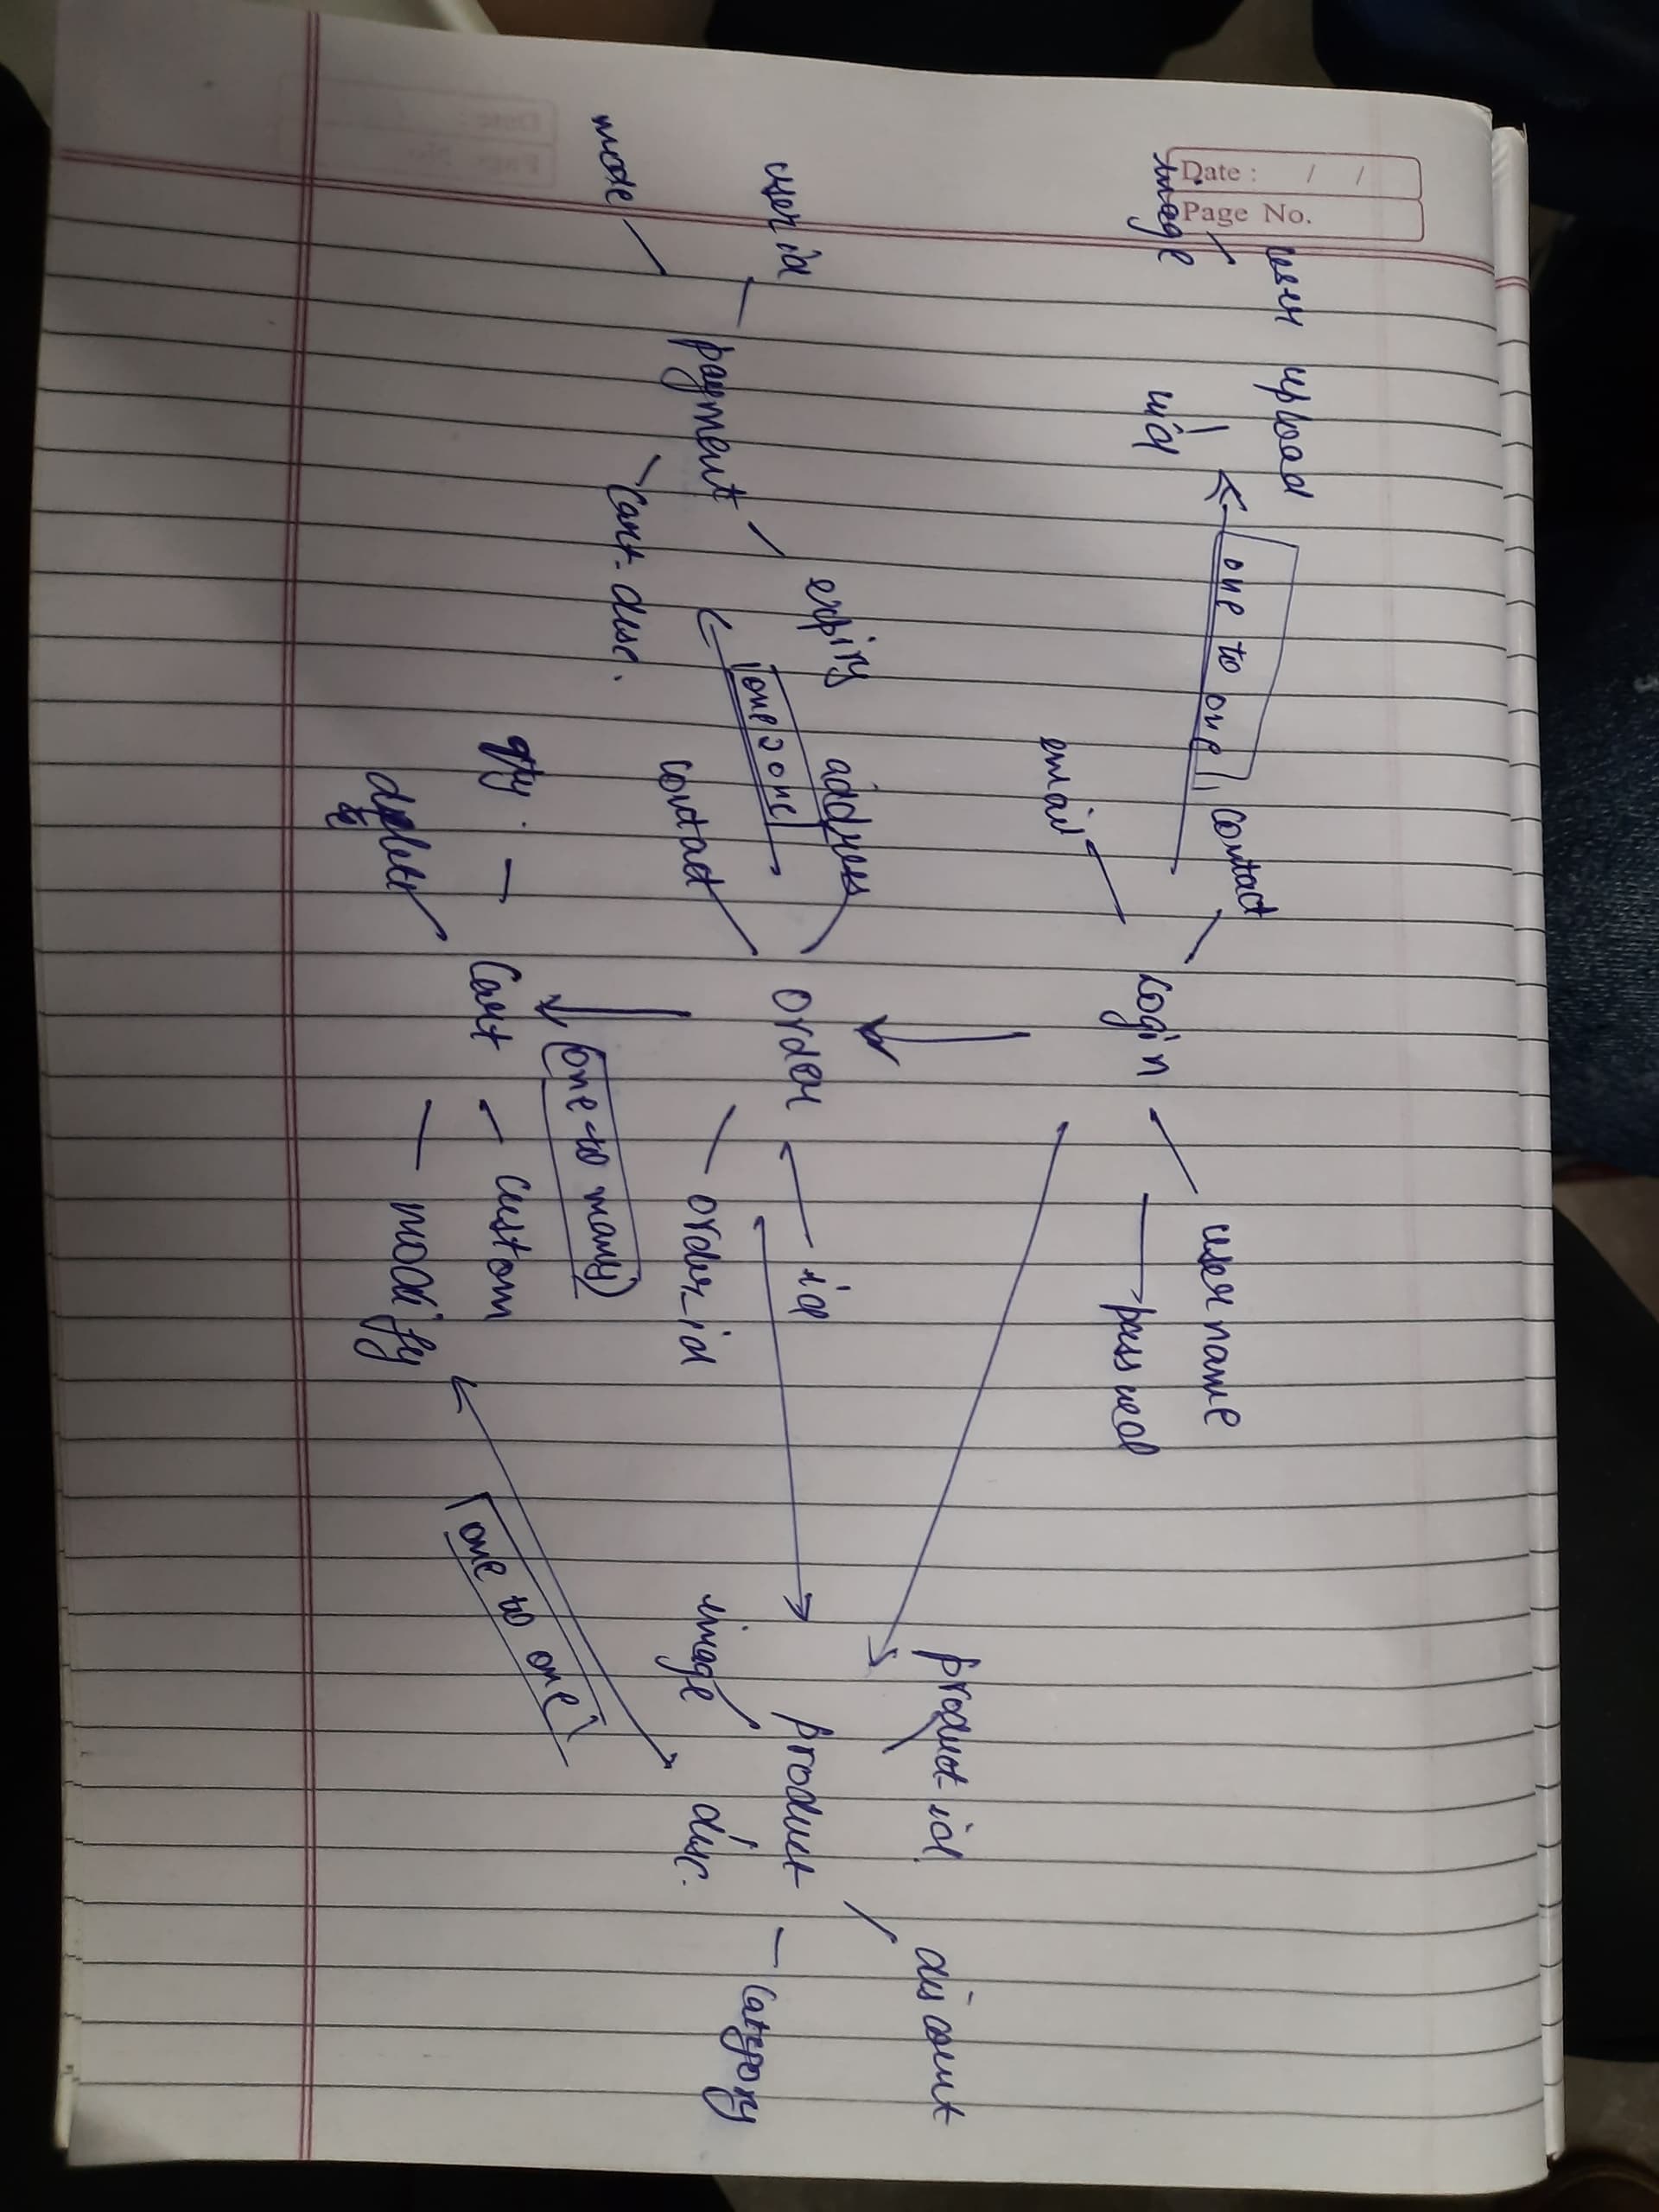 Date : / /
Page No.
user upload
image
uid
one to one
contact
user name
Login
email
password
user id
expiry
address
product id
discount
mode
payment
one 2 one
order
id
product
category
cart disc.
contact
order_id
image
disc.
one to many
qty.
cart
custom
one to one
modify